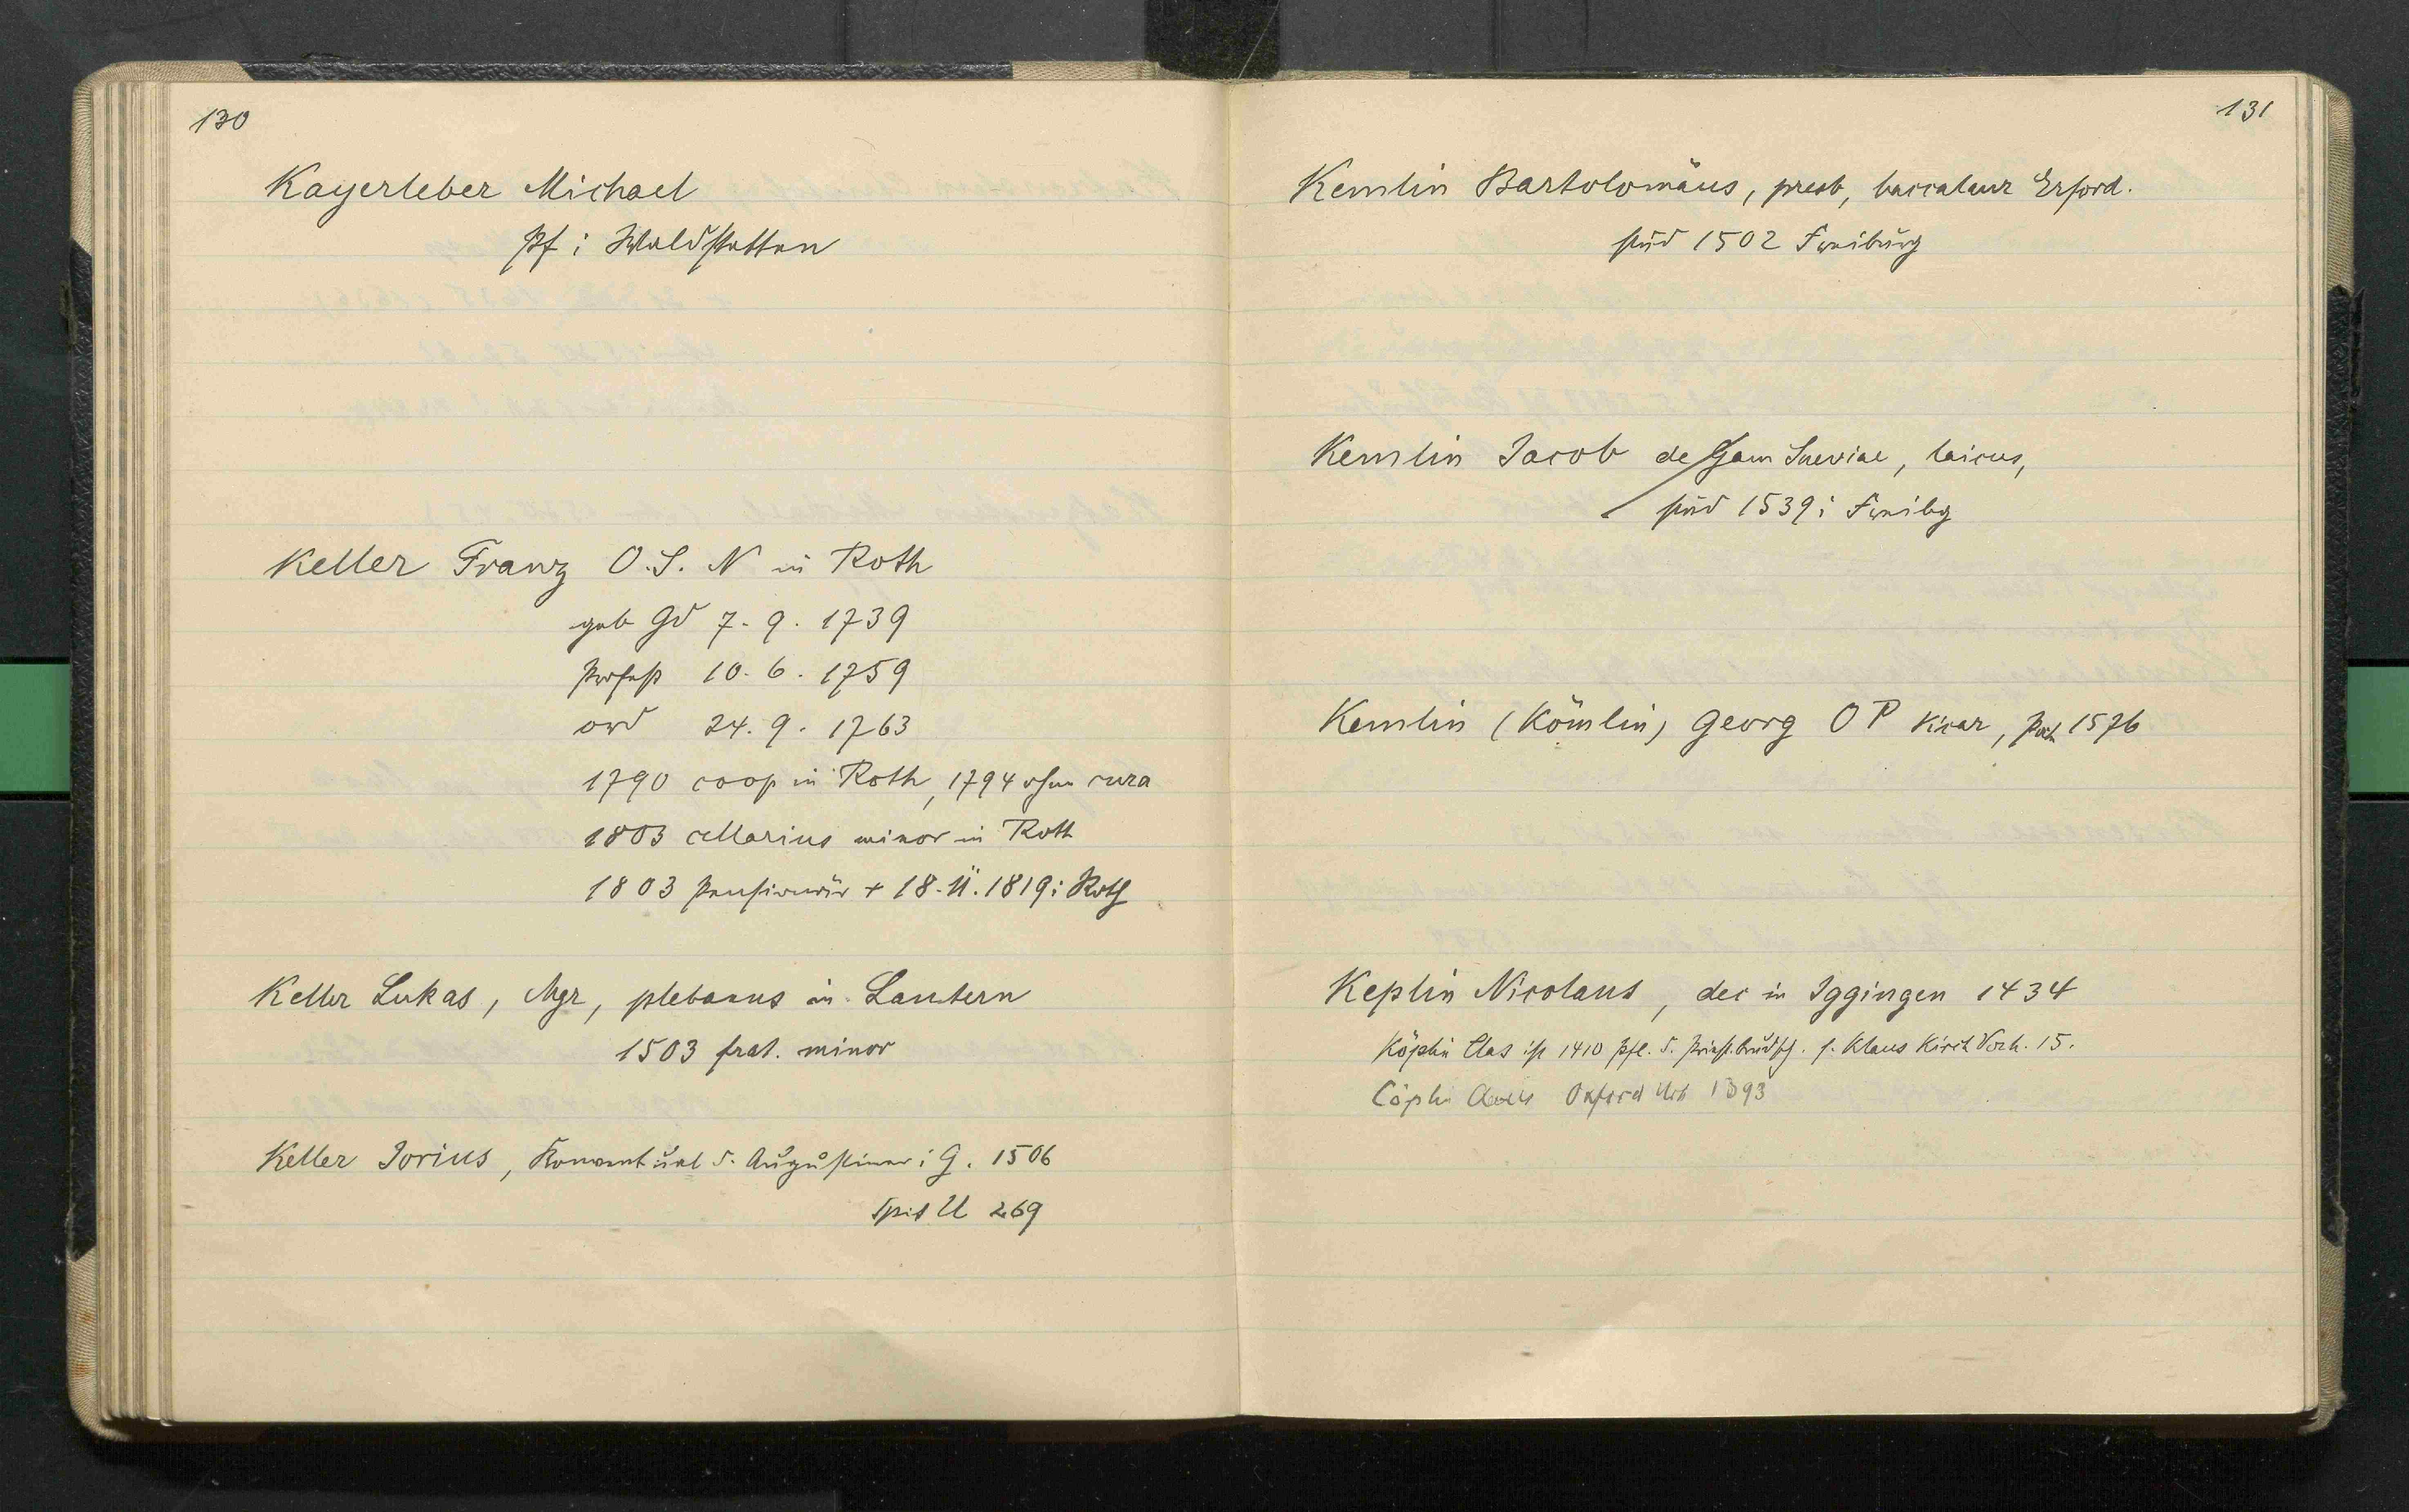 130
Kayerleber Michael
Pf i Waldstetten
Keller Franz O.S.N in Roth
geb Gd 7.9.1739
Profeß 10.6.1759
ord 24.9.1763
1790 coop in Roth, 1794 ohne cura
1803 cellarius minor in Roth
1803 Pensionär + 18.11.1819 i Roth
Keller Lukas, Mgr, plebanus in Lautern
1503 frat. minor
Keller Jorius, Konventual d. Augustiner i G. 1506
Spit U 269
131
Kemlin Bartolomäus, presb, baccalaur Erford.
stud 1502 Freiburg
Kemlin Jacob de Gam Sueviae, laicus,
stud 1539 i Freibg
Kemlin (Kömlin) Georg O P Vicar, 1576
Keplin Nicolaus, dec in Iggingen 1434
Köplin Clas ist 1410 Pfl. d. Priest.brudsch. s. Klaus Kirch Vorh. 15.
Cöplin Oxford 1393